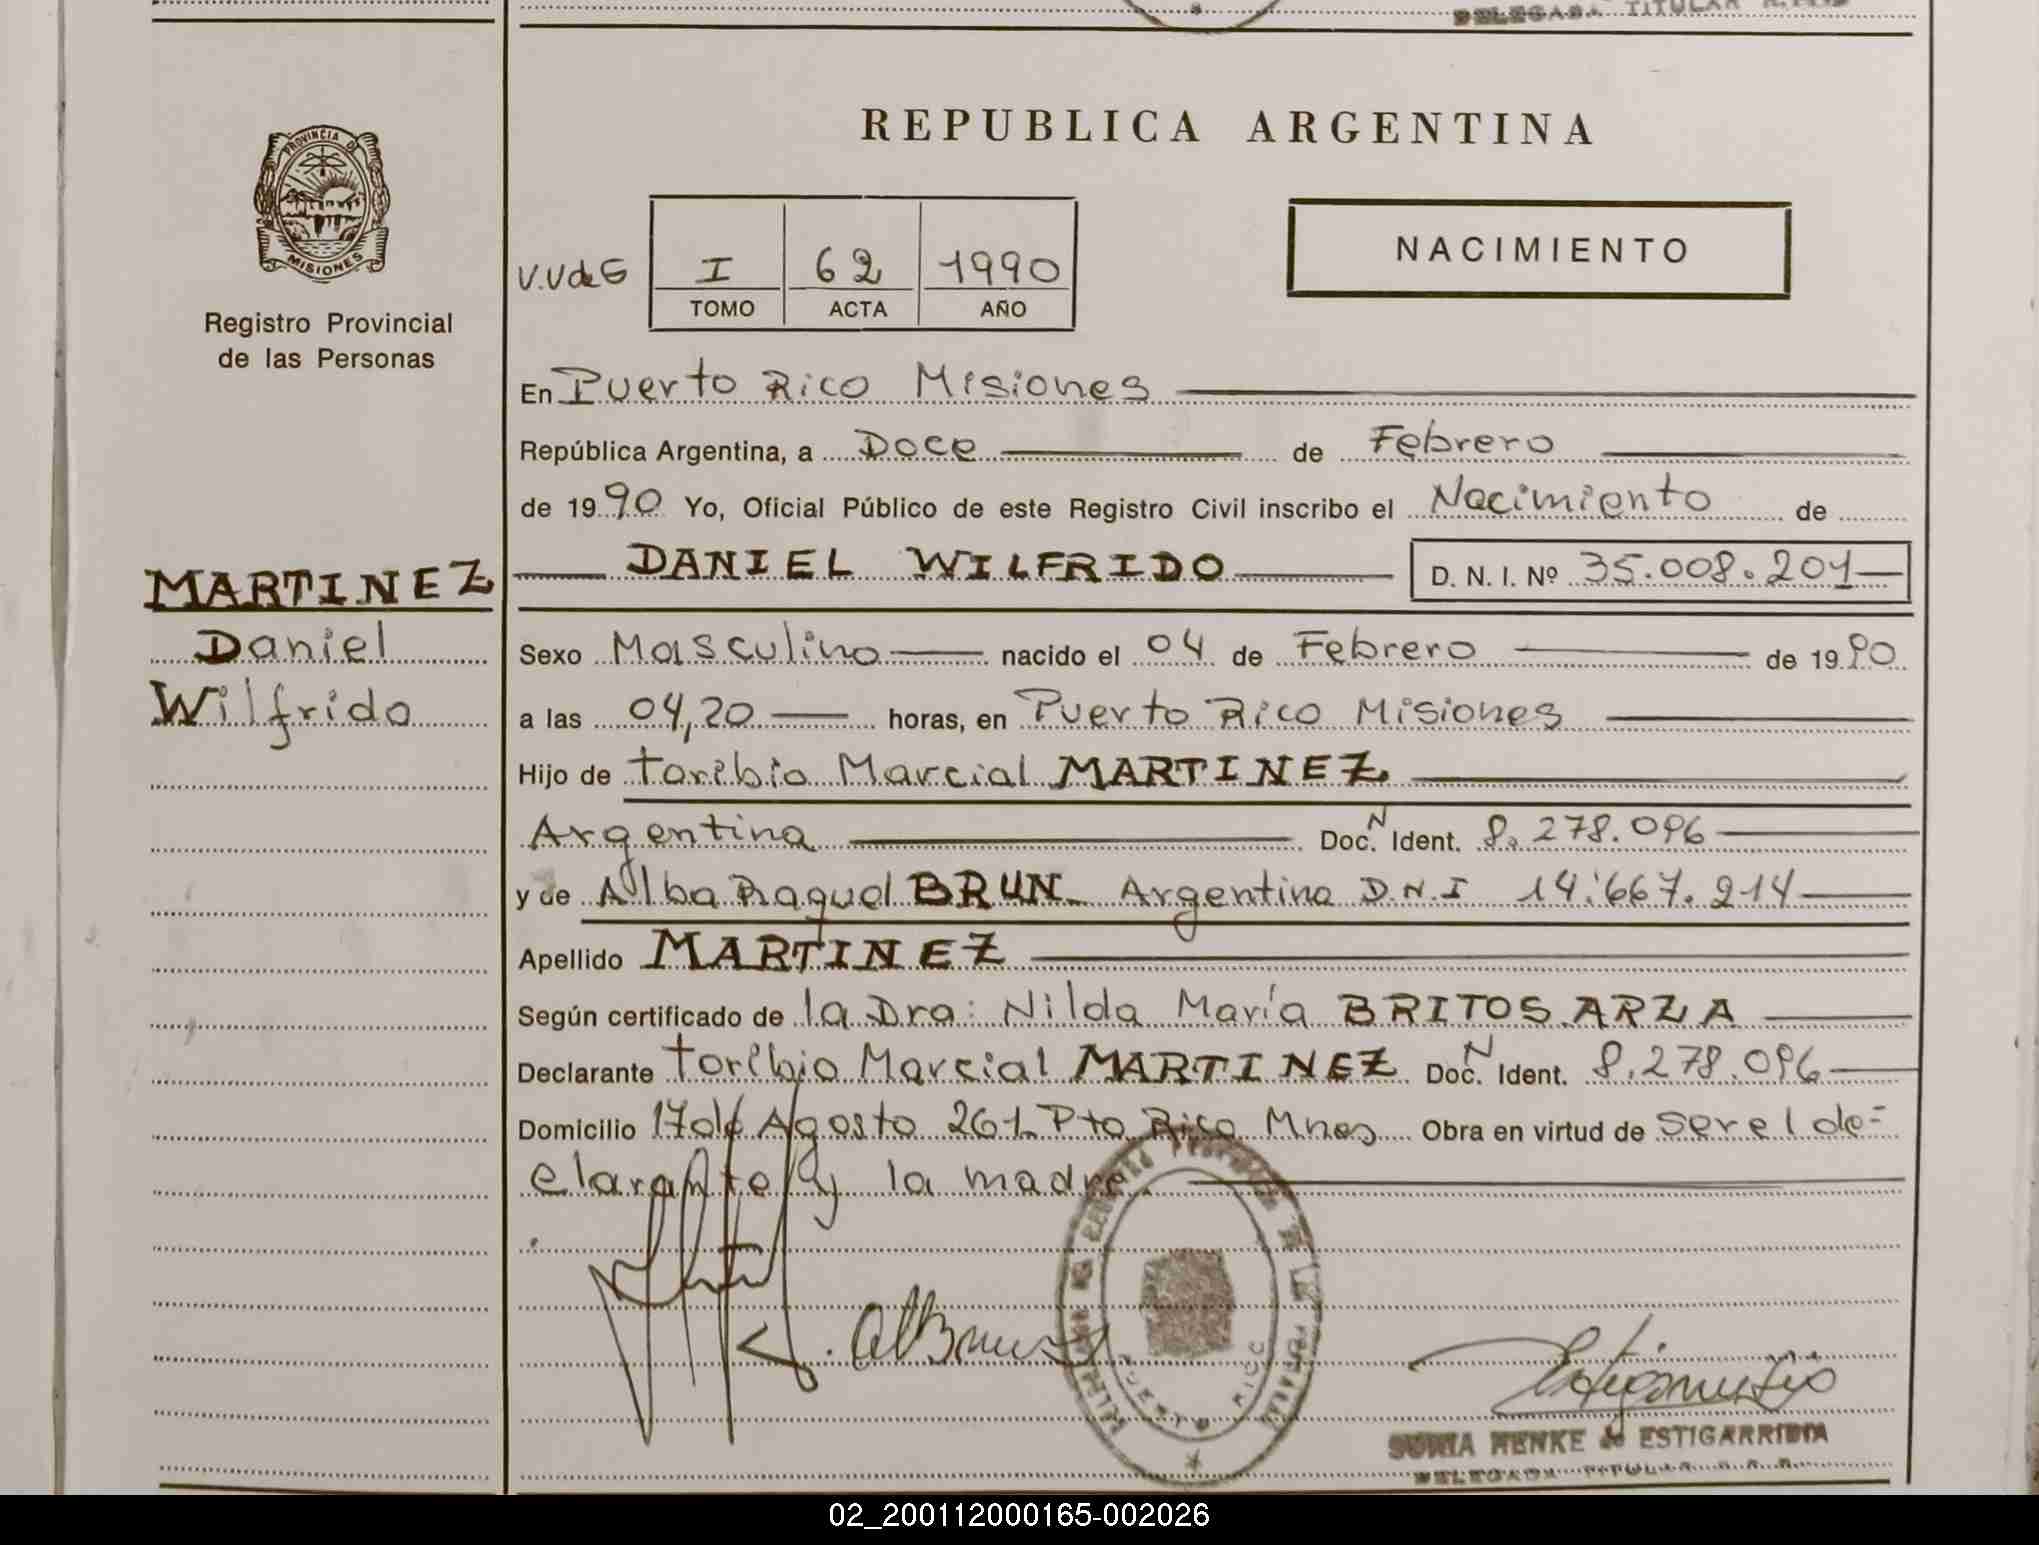 DELEGADA TITULAR R.P.P.
PROVINCIA DE
MISIONES
Registro Provincial
de las Personas
MARTINEZ
Daniel
Wilfrido
REPUBLICA ARGENTINA
NACIMIENTO
V.V de G
I 62 1990
TOMO ACTA AÑO
En Puerto Rico Misiones
República Argentina, a Doce de Febrero
de 1990 Yo, Oficial Público de este Registro Civil inscribo el Nacimiento de
DANIEL WILFRIDO D. N. I. Nº 35.008.201
Sexo Masculino nacido el 04 de Febrero de 1990
a las 04,20 horas, en Puerto Rico Misiones
Hijo de Toribio Marcial MARTINEZ
Argentina Doc. N Ident. 8.278.096
y de Alba Raquel BRUN Argentina D.N.I 14.667.214
Apellido MARTINEZ
Según certificado de la Dra: Nilda María BRITOS ARZA
Declarante Toribio Marcial MARTINEZ Doc. N Ident. 8.278.096
Domicilio 17 de Agosto 261 Pto Rico Mnes Obra en virtud de ser el de=
clarante y la madre.
PUERTO RICO
SONIA HENKE de ESTIGARRIBIA
DELEGADA TITULAR
02_200112000165-002026